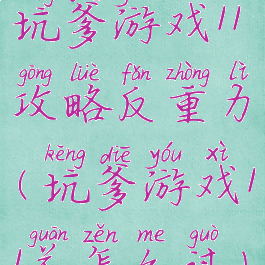 坑爹游戏11
gōng lüè fǎn zhòng lì
攻略反重力
kēng diē yóu xì
(坑爹游戏1
guān zěn me guò
1关怎么过)